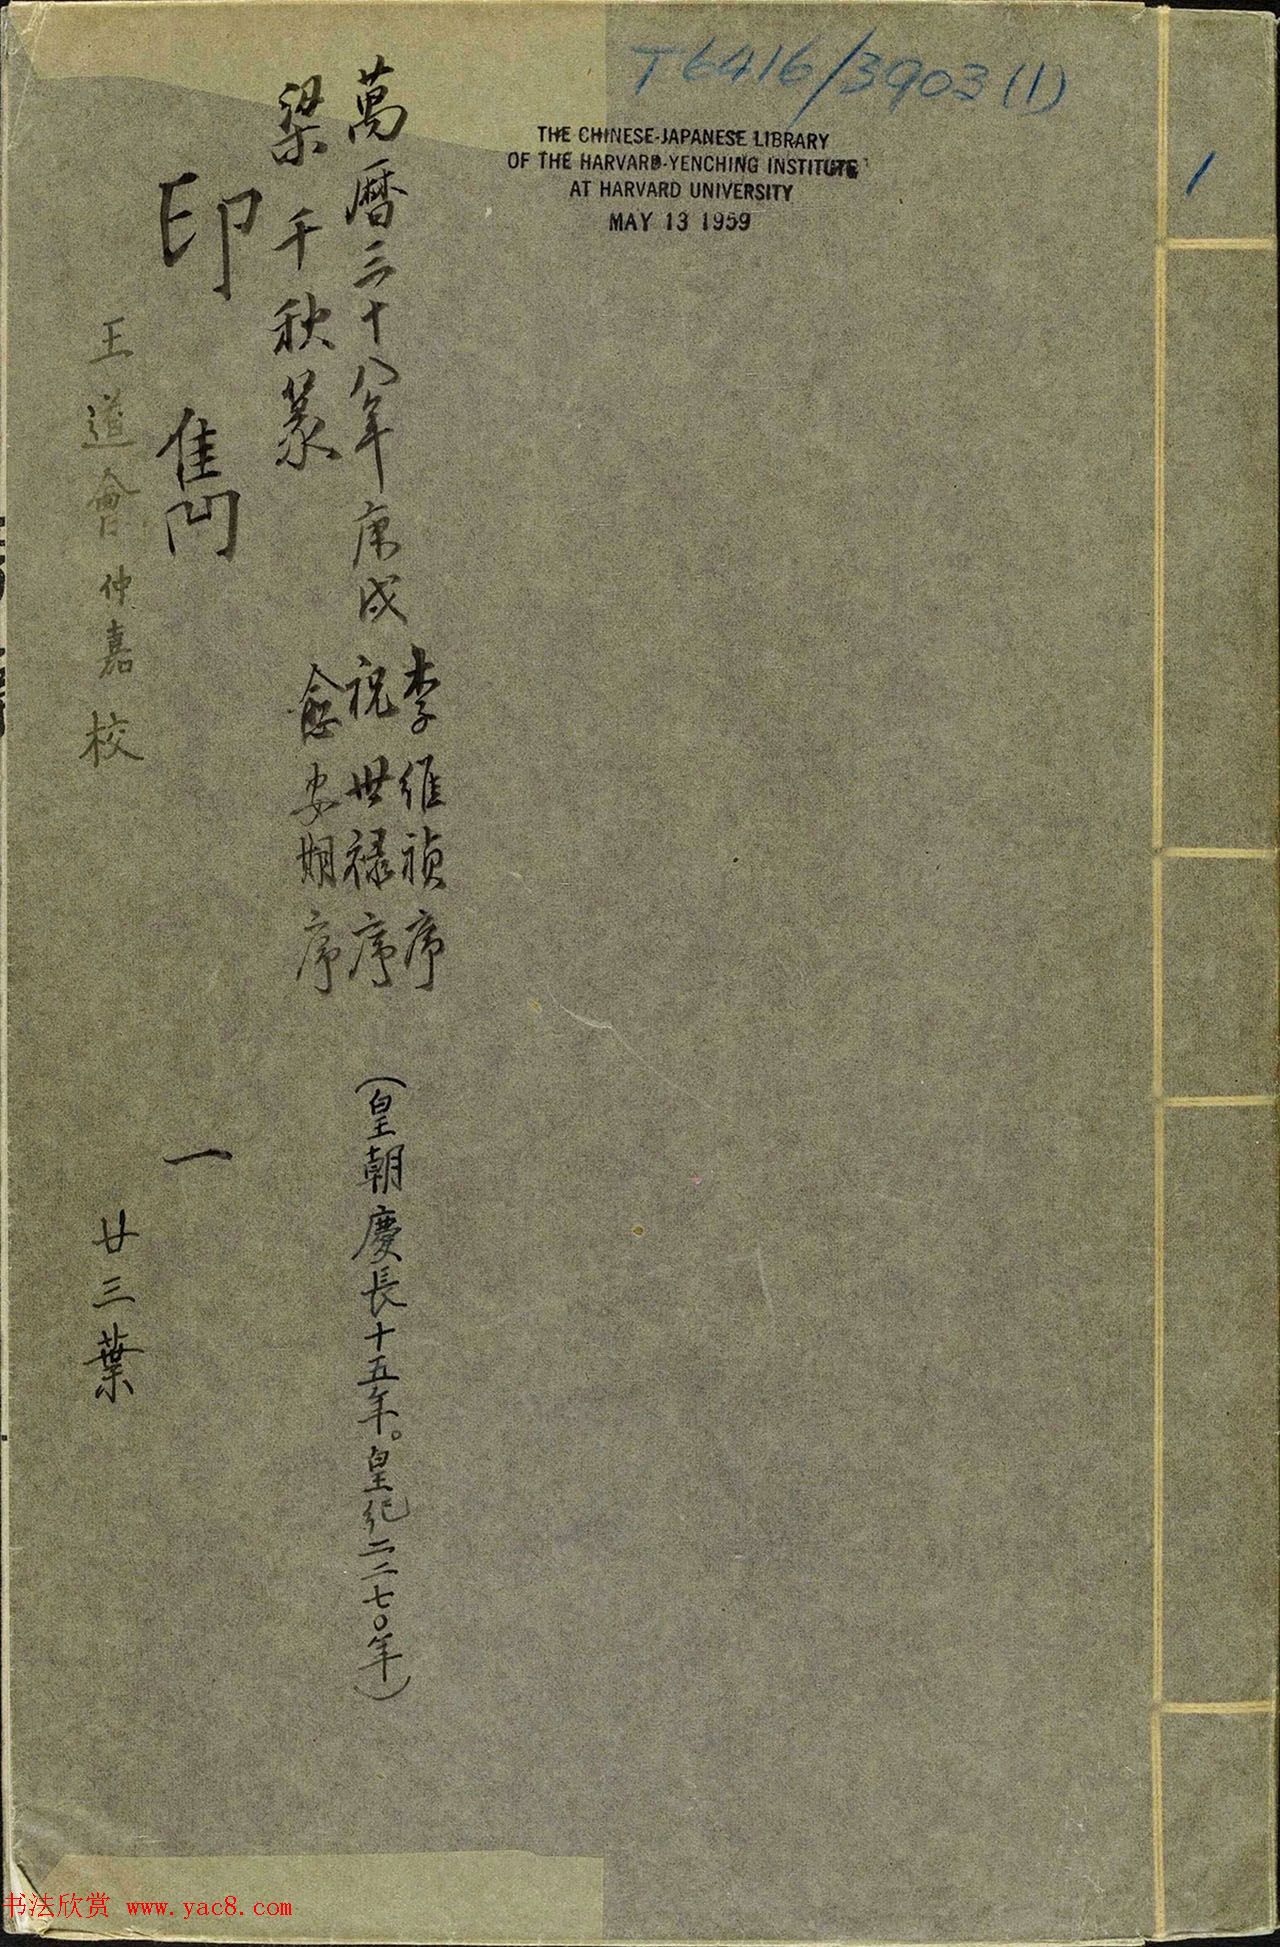 T6416/3903(1)
1
THE CHINESE-JAPANESE LIBRARY
OF THE HARVARD-YENCHING INSTITUTE
AT HARVARD UNIVERSITY
MAY 13 1959
李維禎序
祝世禄序
俞安期序
萬暦三十八年庚戌
(皇朝慶長十五年。皇紀二二七〇年)
梁千秋篆
印雋 一
王道會仲嘉校
廿三葉
书法欣赏 www.yac8.com